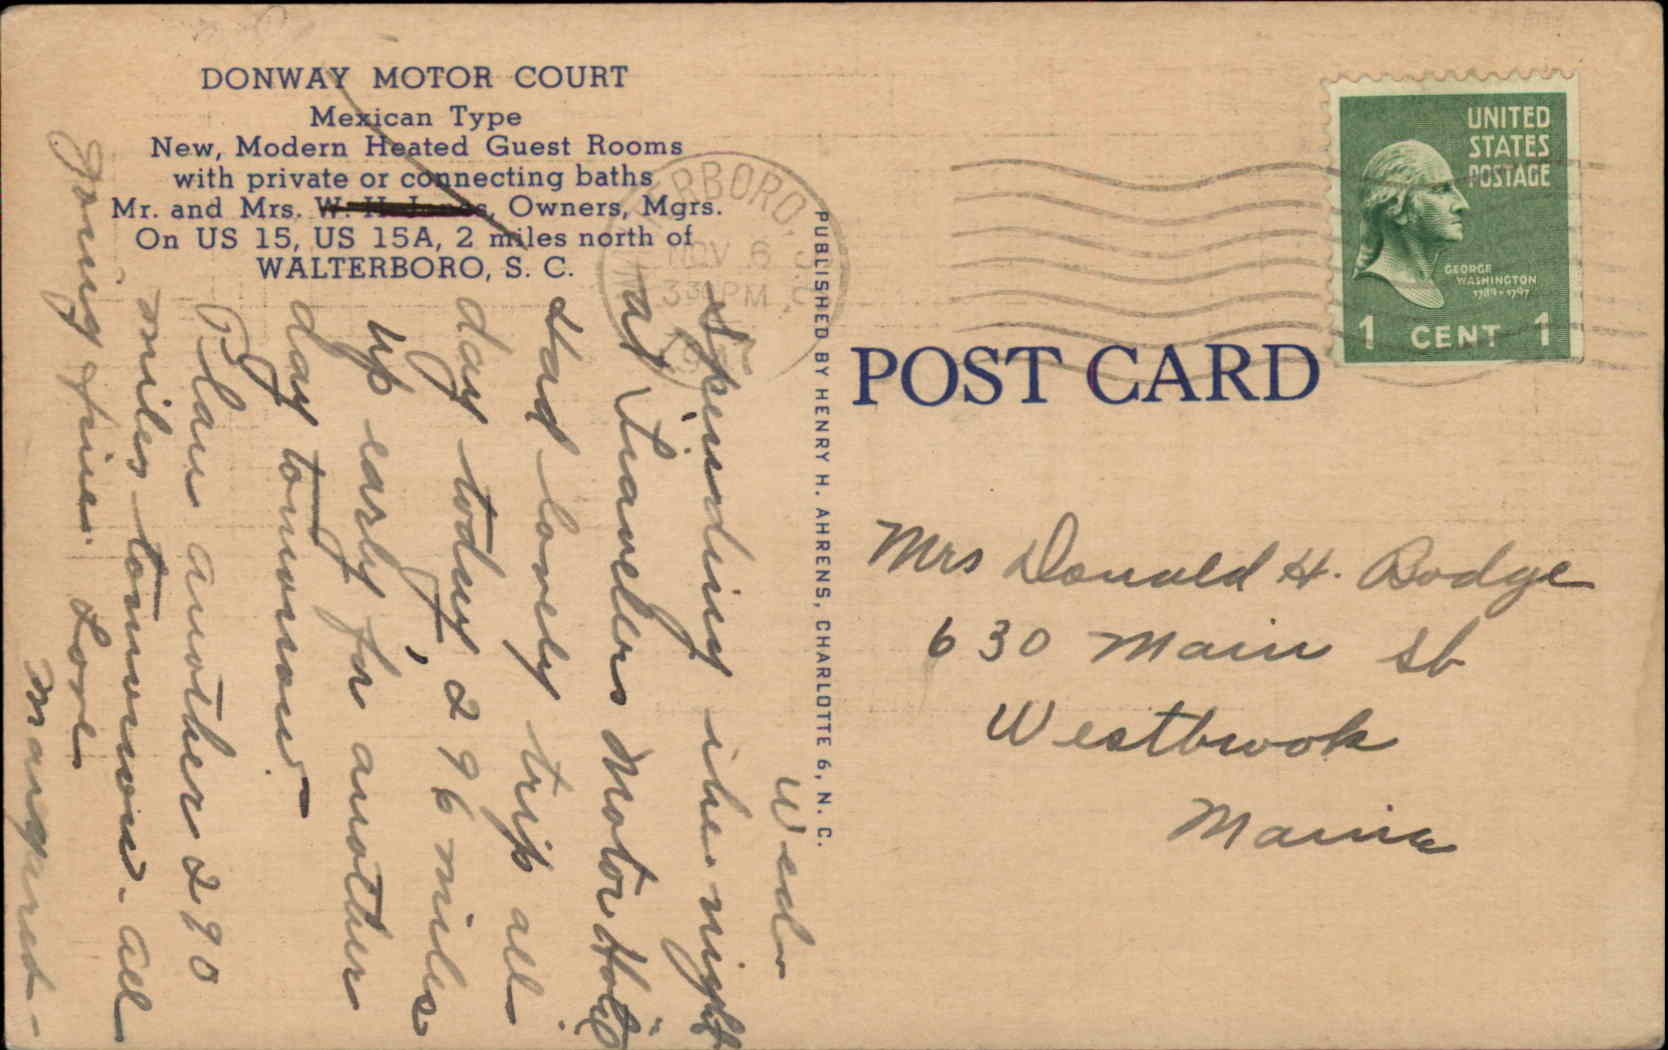 DONWAY MOTOR COURT
Mexican Type
New, Modern Heated Guest Rooms
with private or connecting baths
Mr. and Mrs. W. H. Jones, Owners, Mgrs.
On US 15, US 15A, 2 miles north of
WALTERBORO, S. C.
Wed
Spending the night
at Travelers Motor Hotel
Had lovely trip all
day today, 296 miles
up early for another
day tomorrow.
Plan another 290
miles tomorrow. All
going fine. Love
Margaret -
PUBLISHED BY HENRY H. AHRENS, CHARLOTTE 6, N. C.
NOV 6
330 PM
POST CARD
UNITED
STATES
POSTAGE
GEORGE
WASHINGTON
1789-1797
1 CENT 1
Mrs Donald H. Bodge
630 Main St
Westbrook
Maine